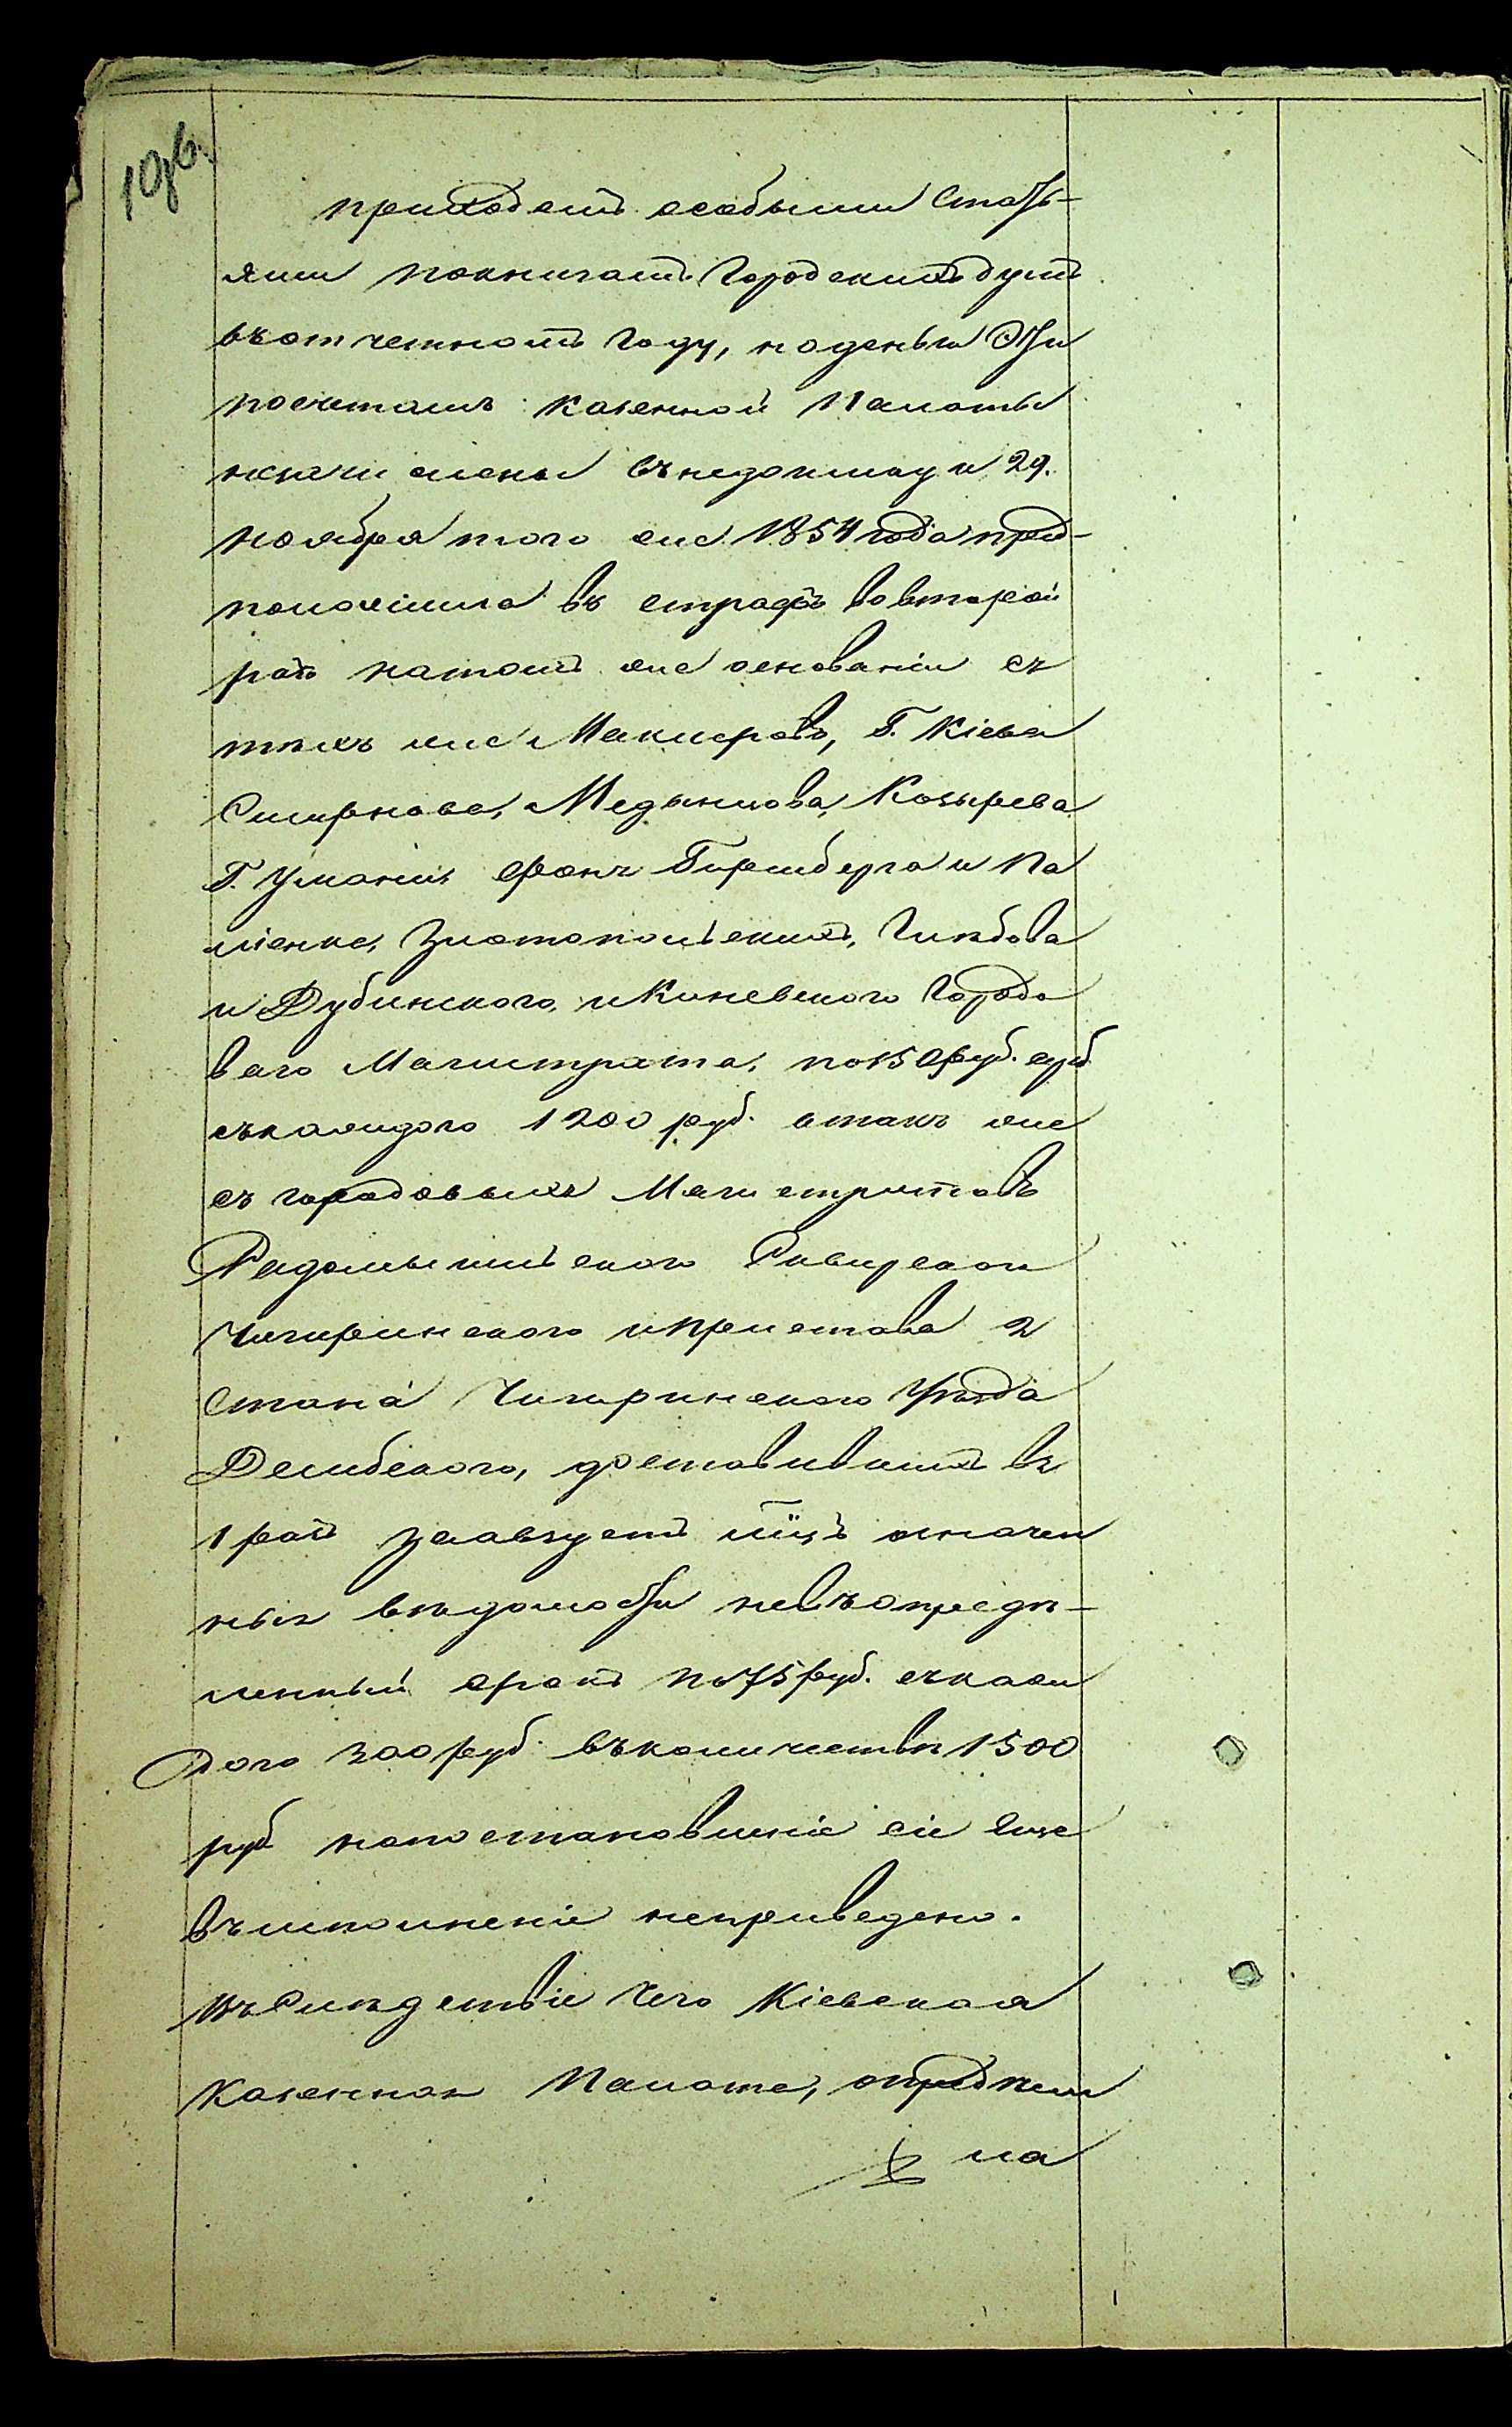 19об.
приходомъ особыми Стать-
ями покнигамъ Городскихъ думъ
въотчетномъ году, ноденьги Эти
посчетамъ Казенной Палаты
исчислены въ недоимку и 29.
Ноября того же 1854 года пред-
положила въ страфъ вовторой
разъ натомъ же основаніи съ
тѣхъ же Маклеровъ, Г. Кіева
Смирнова, Медынцова, Козырева
Г. Умани, Фонъ Гиршберга и Па
ліенка, Златопольскихъ, Глѣбова
и Дубинского, и Каневского Городо
ваго Магистрата, по 150 руб. сер.
скаждого 1200 руб. атакъ же
съ городовыхъ Магистратовъ
Радомысльского Сквирскои
Чигиринского иПристава 2
Стана Чигиринского Уѣзда
Дембского, доставившихъ въ
1 разъ заавгустъ мцъ означен
ныя вѣдомости невъопредѣ-
ленный срокъ по 75 руб. скаж
дого 300 руб. въколичествѣ 1500
руб. нопостановленіе сіе еще
въисполненіе неприведено.
ВъСлѣдствіе чего Кіевская
Казенная Палата, опредѣли
ла